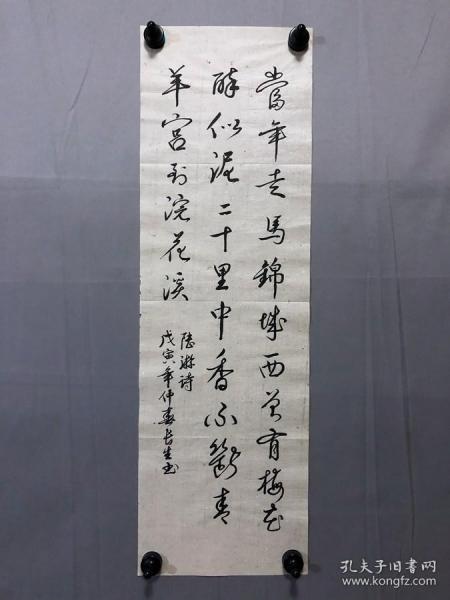 當年走馬錦城西曾有梅花
醉似泥二十里中香不斷青
羊宮到浣花溪
陸游詩
戊寅年仲春長生書
孔夫子旧书网
www.kongfz.com